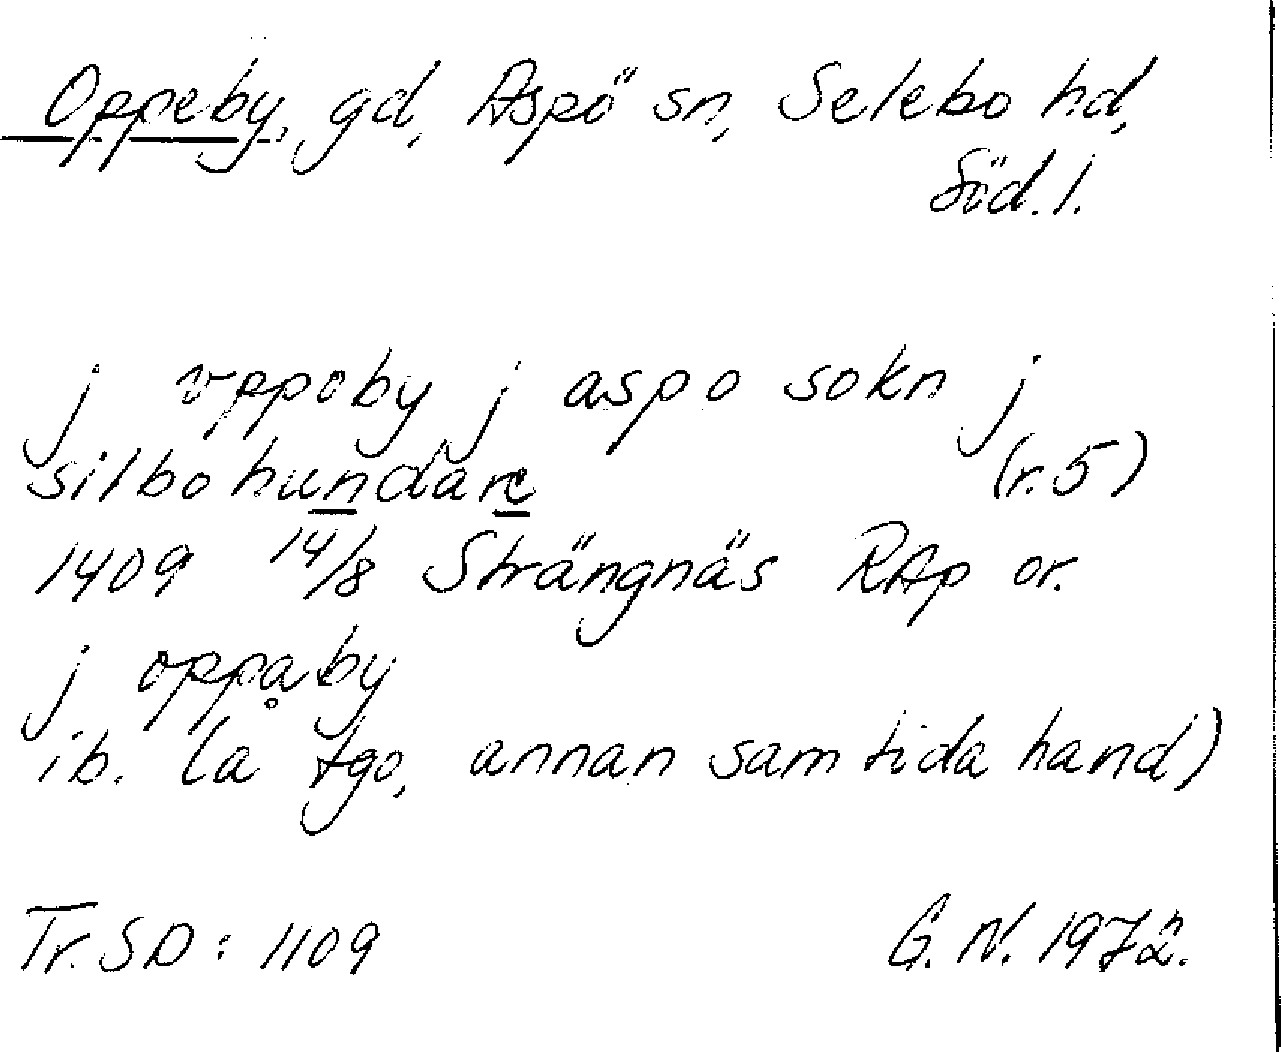 Oppeby, gd, Aspö sn, Selebo hd,
Söd. l.
j vppoby j aspo sokn j
silbohundare (r. 5)
1409 14/8 Strängnäs RAp or.
j oppḁby
ib. (a tgo, annan samtida hand)
Tr. SD: 1109 G. N. 1972.